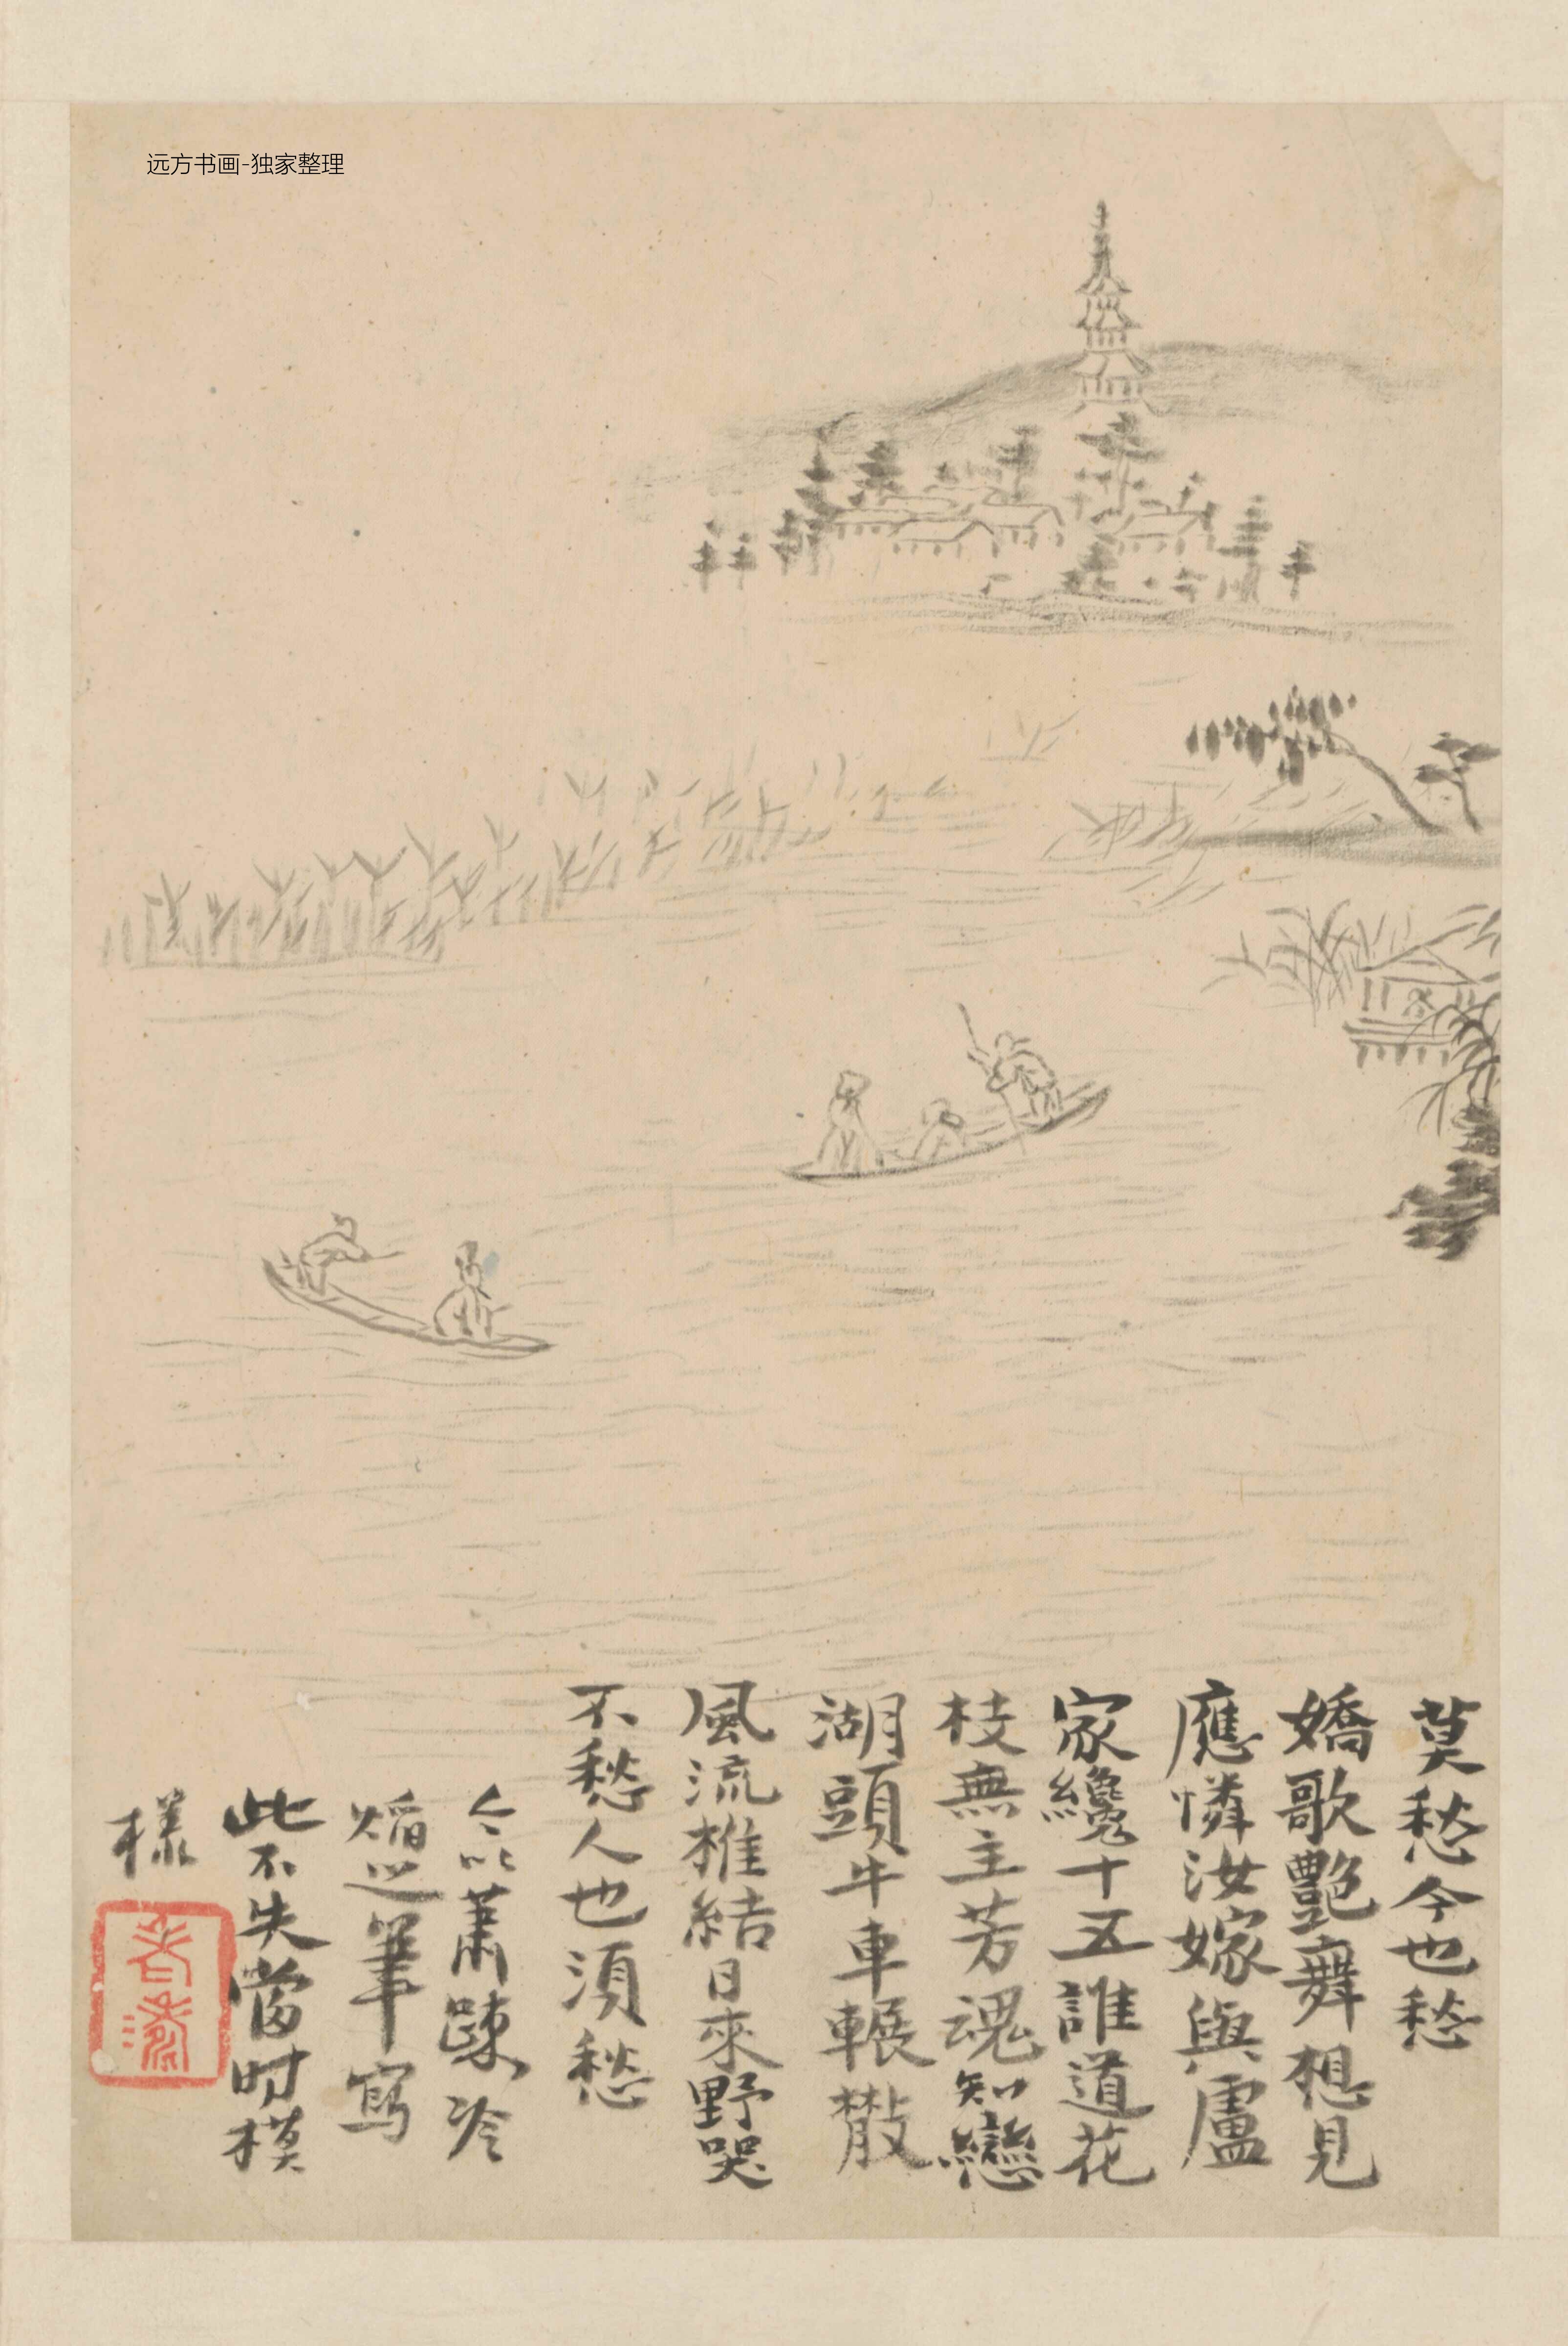 远方书画-独家整理
莫愁今也愁
嬌歌艷舞想見
應憐汝嫁與盧
家纔十五誰道花
枝無主芳魂知戀
湖頭牛車輾
風流椎結日來野哭
不愁人也須愁
今以蕭疎冷
筆寫
此不失當時模
樣